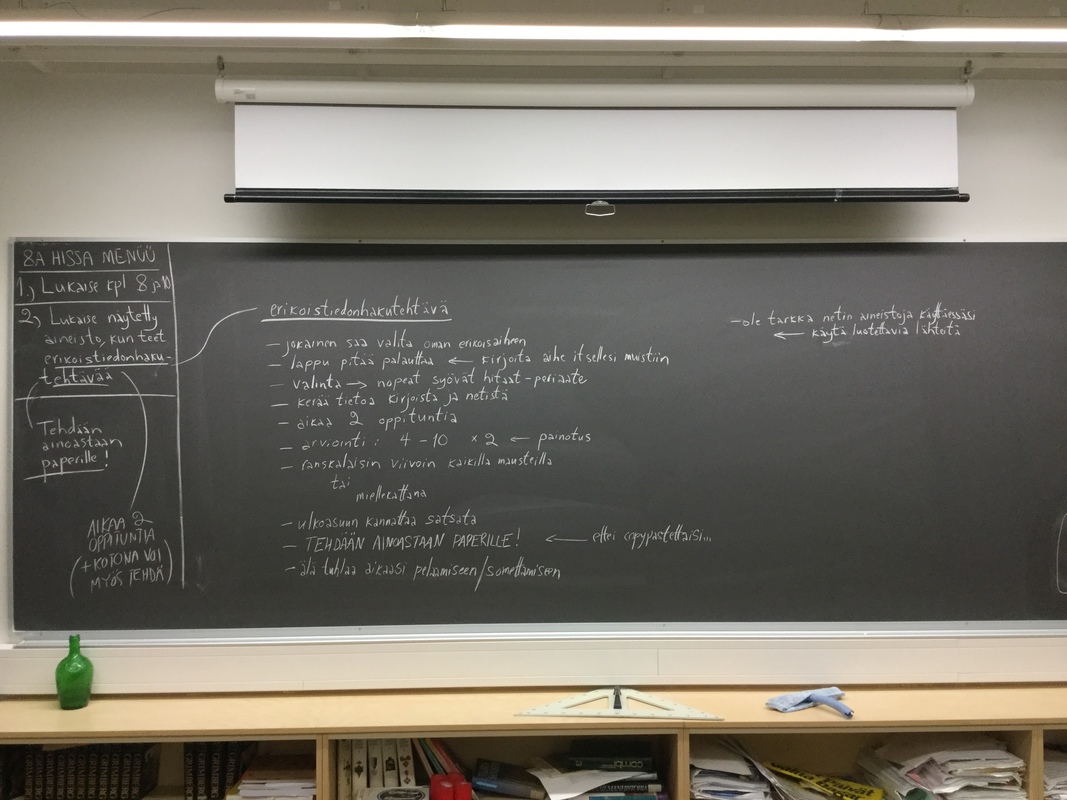 8A HISSA MENÜÜ
1.) Lukaise kpl 8
2) Lukaise näytetty
aineisto, kun teet
erikoistiedonhaku-
tehtävää
Tehdään
ainoastaan
paperille!
AIKAA 2
OPPITUNTIA
(+KOTONA VOI
MYÖS TEHDÄ)
erikoistiedonhakutehtävä
- jokainen saa valita oman erikoisaiheen
- lappu pitää palauttaa ← kirjoita aihe itsellesi muistiin
- valinta → nopeat syövät hitaat-periaate
- kerää tietoa kirjoista ja netistä
- aikaa 2 oppituntia
- arviointi: 4-10 x2 ← painotus
- ranskalaisin viivoin kaikilla mausteilla
tai
miellekarttana
- ulkoasuun kannattaa satsata
- TEHDÄÄN AINOASTAAN PAPERILLE! ← ettei copypastettaisi...
- älä tuhlaa aikaasi pelaamiseen/somettamiseen
- ole tarkka netin aineistoja käyttäessäsi
← käytä luotettavia lähteitä